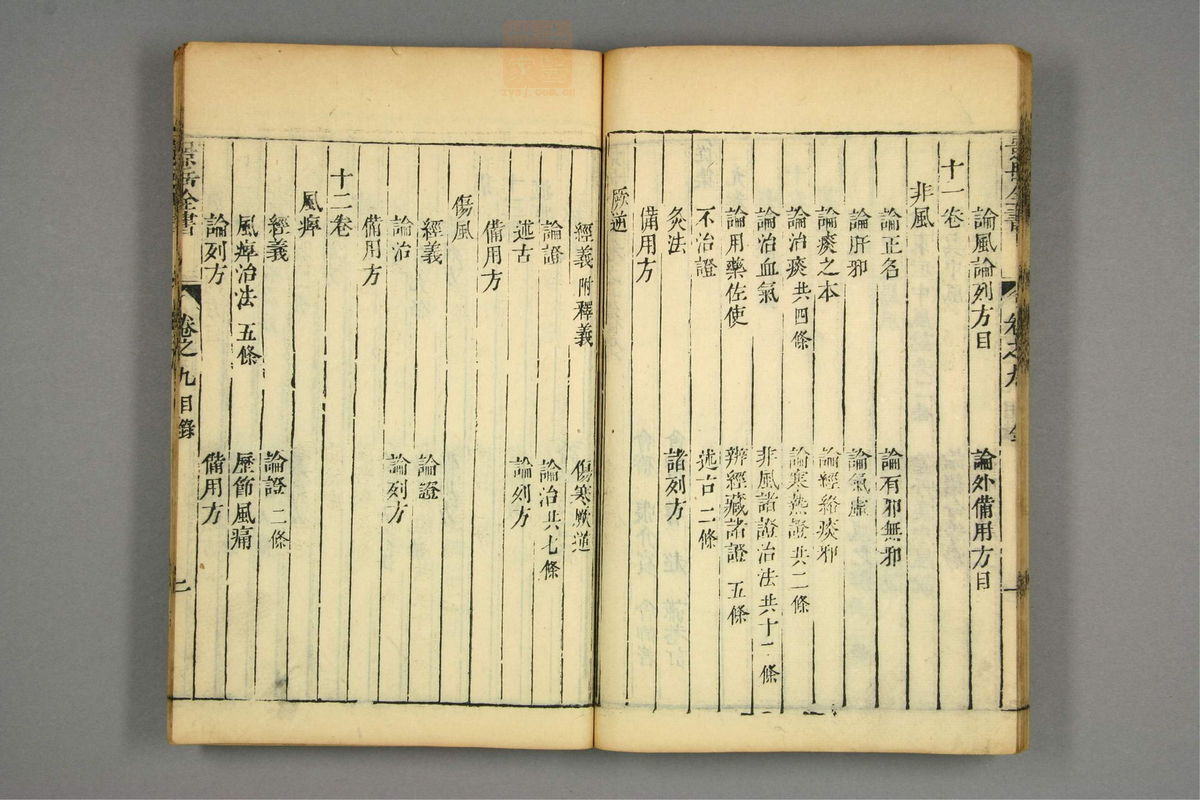 景岳全書 卷之九 目錄 一
論風論列方目 論外備用方目
十一卷
非風
論正名 論有邪無邪
論肝邪 論氣虛
論痰之本 論經絡痰邪
論治痰共四條 論寒熱證共二條
論治血氣 非風諸證治法共十二條
論用藥佐使 辨經藏諸證 五條
不治證 述古二條
灸法 諸列方
備用方
厥逆
經義 附釋義 傷寒厥逆
論證 論治共七條
述古 論列方
備用方
傷風
經義 論證
論治 論列方
備用方
十二卷
風痺
經義 論證 二條
風痺治法 五條 歷節風痛
論列方 備用方
景岳全書 卷之九 目錄 二